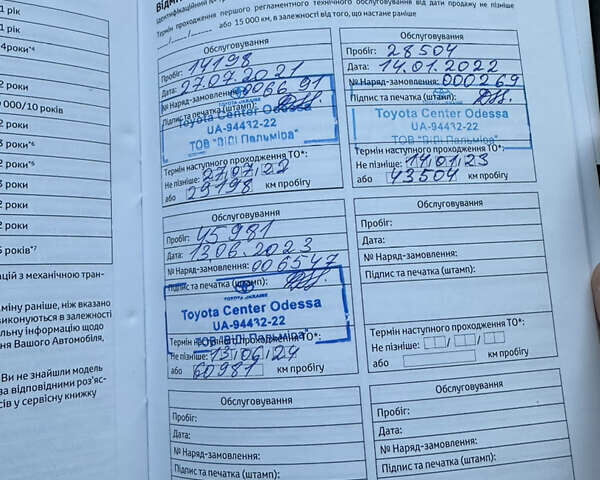 1 рік
1 рік
4роки*⁴
2 роки
000/10 років
2 роки
3 роки*⁵
2 роки*⁵
3 роки
2 роки
2 роки
5 років*⁷
ацій з механічною тран-
міну раніше, ніж вказано
виконуються в залежності
льну інформацію щодо
ня Вашого Автомобіля,
Ви не знайшли модель
за відповідними роз'яс-
сів у сервісну книжку
Термін проходження першого регламентного технічного обслуговування від дати продажу не пізніше
__/__/____ або 15 000 км, в залежності від того, що настане раніше
Обслуговування
Пробіг: 14198
Дата: 27.07.2021
№ Наряд-замовлення: 006691
Підпис та печатка (штамп):
TOYOTA UKRAINE
Toyota Center Odessa
UA-94432-22
ТОВ "ВІДІ Пальміра"
Термін наступного проходження ТО*:
Не пізніше: 27.07.22
або 29198 км пробігу
Обслуговування
Пробіг: 28504
Дата: 14.01.2022
№ Наряд-замовлення: 000269
Підпис та печатка (штамп):
Toyota Center Odessa
UA-94432-22
ТОВ "ВІДІ Пальміра"
Термін наступного проходження ТО*:
Не пізніше: 14.01.23
або 43504 км пробігу
Обслуговування
Пробіг: 45981
Дата: 13.06.2023
№ Наряд-замовлення: 006547
Підпис та печатка (штамп):
TOYOTA UKRAINE
Toyota Center Odessa
UA-94432-22
ТОВ "ВІДІ Пальміра"
Термін наступного проходження ТО*:
Не пізніше: 13.06.24
або 60981 км пробігу
Обслуговування
Пробіг:
Дата:
№ Наряд-замовлення:
Підпис та печатка (штамп):
Термін наступного проходження ТО*:
Не пізніше: / /
або км пробігу
Обслуговування
Пробіг:
Дата:
№ Наряд-замовлення:
Підпис та печатка (штамп):
Обслуговування
Пробіг:
Дата:
№ Наряд-замовлення:
Підпис та печатка (штамп):